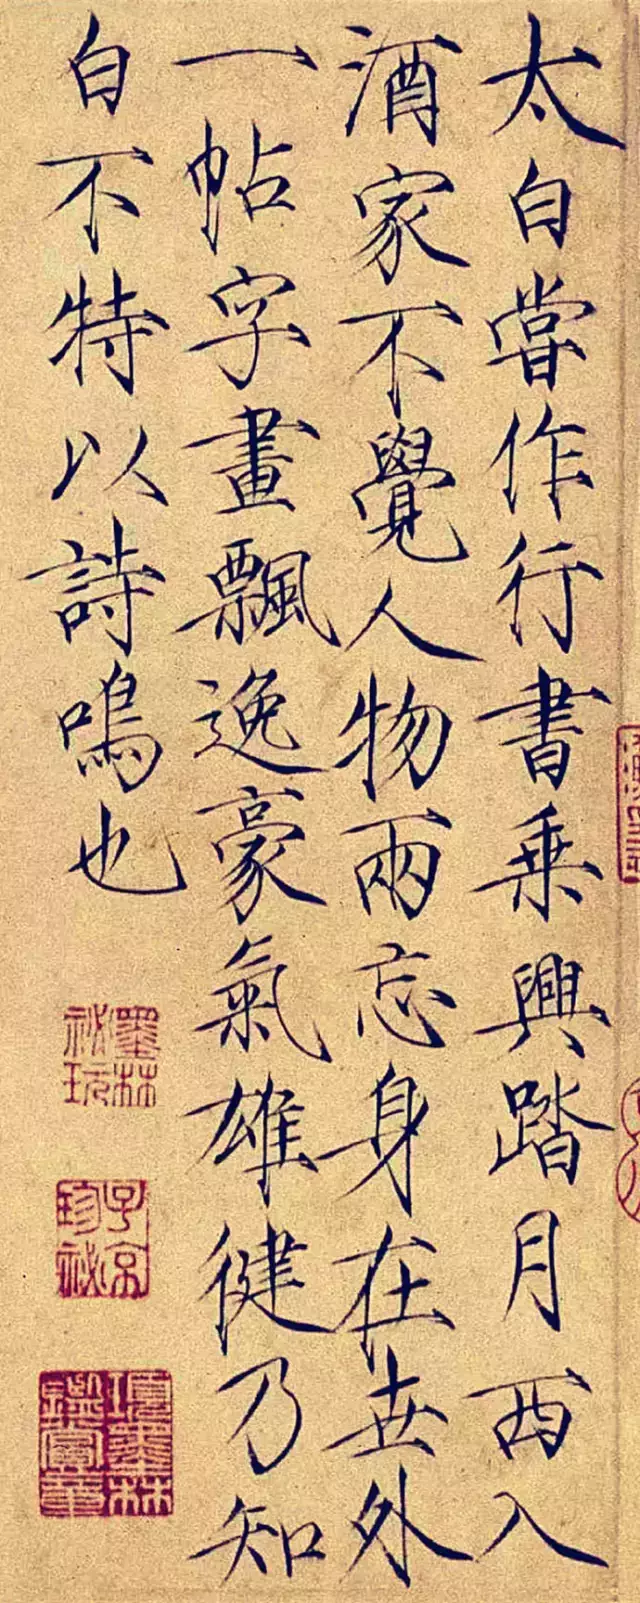 太白嘗作行書乘興踏月西入
酒家不覺人物兩忘身在世外
一帖字畫飄逸豪氣雄健乃知
白不特以詩鳴也
墨林
祕玩
子京
珍祕
項墨林
鑑賞章